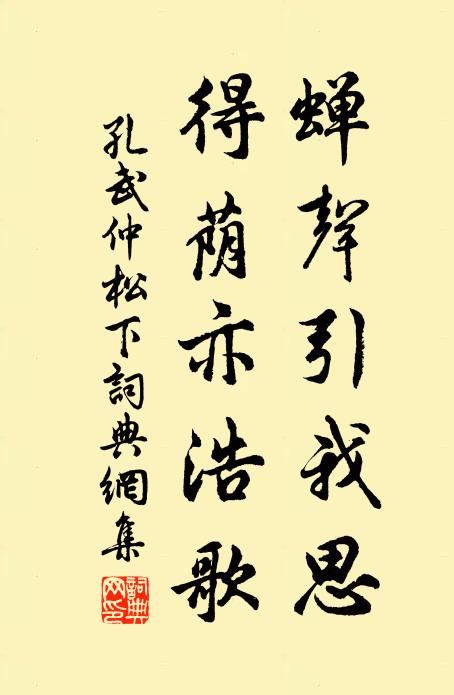 蝉聲引我思
得荫亦浩歌
孔武仲松下詞典網集
詞典网印